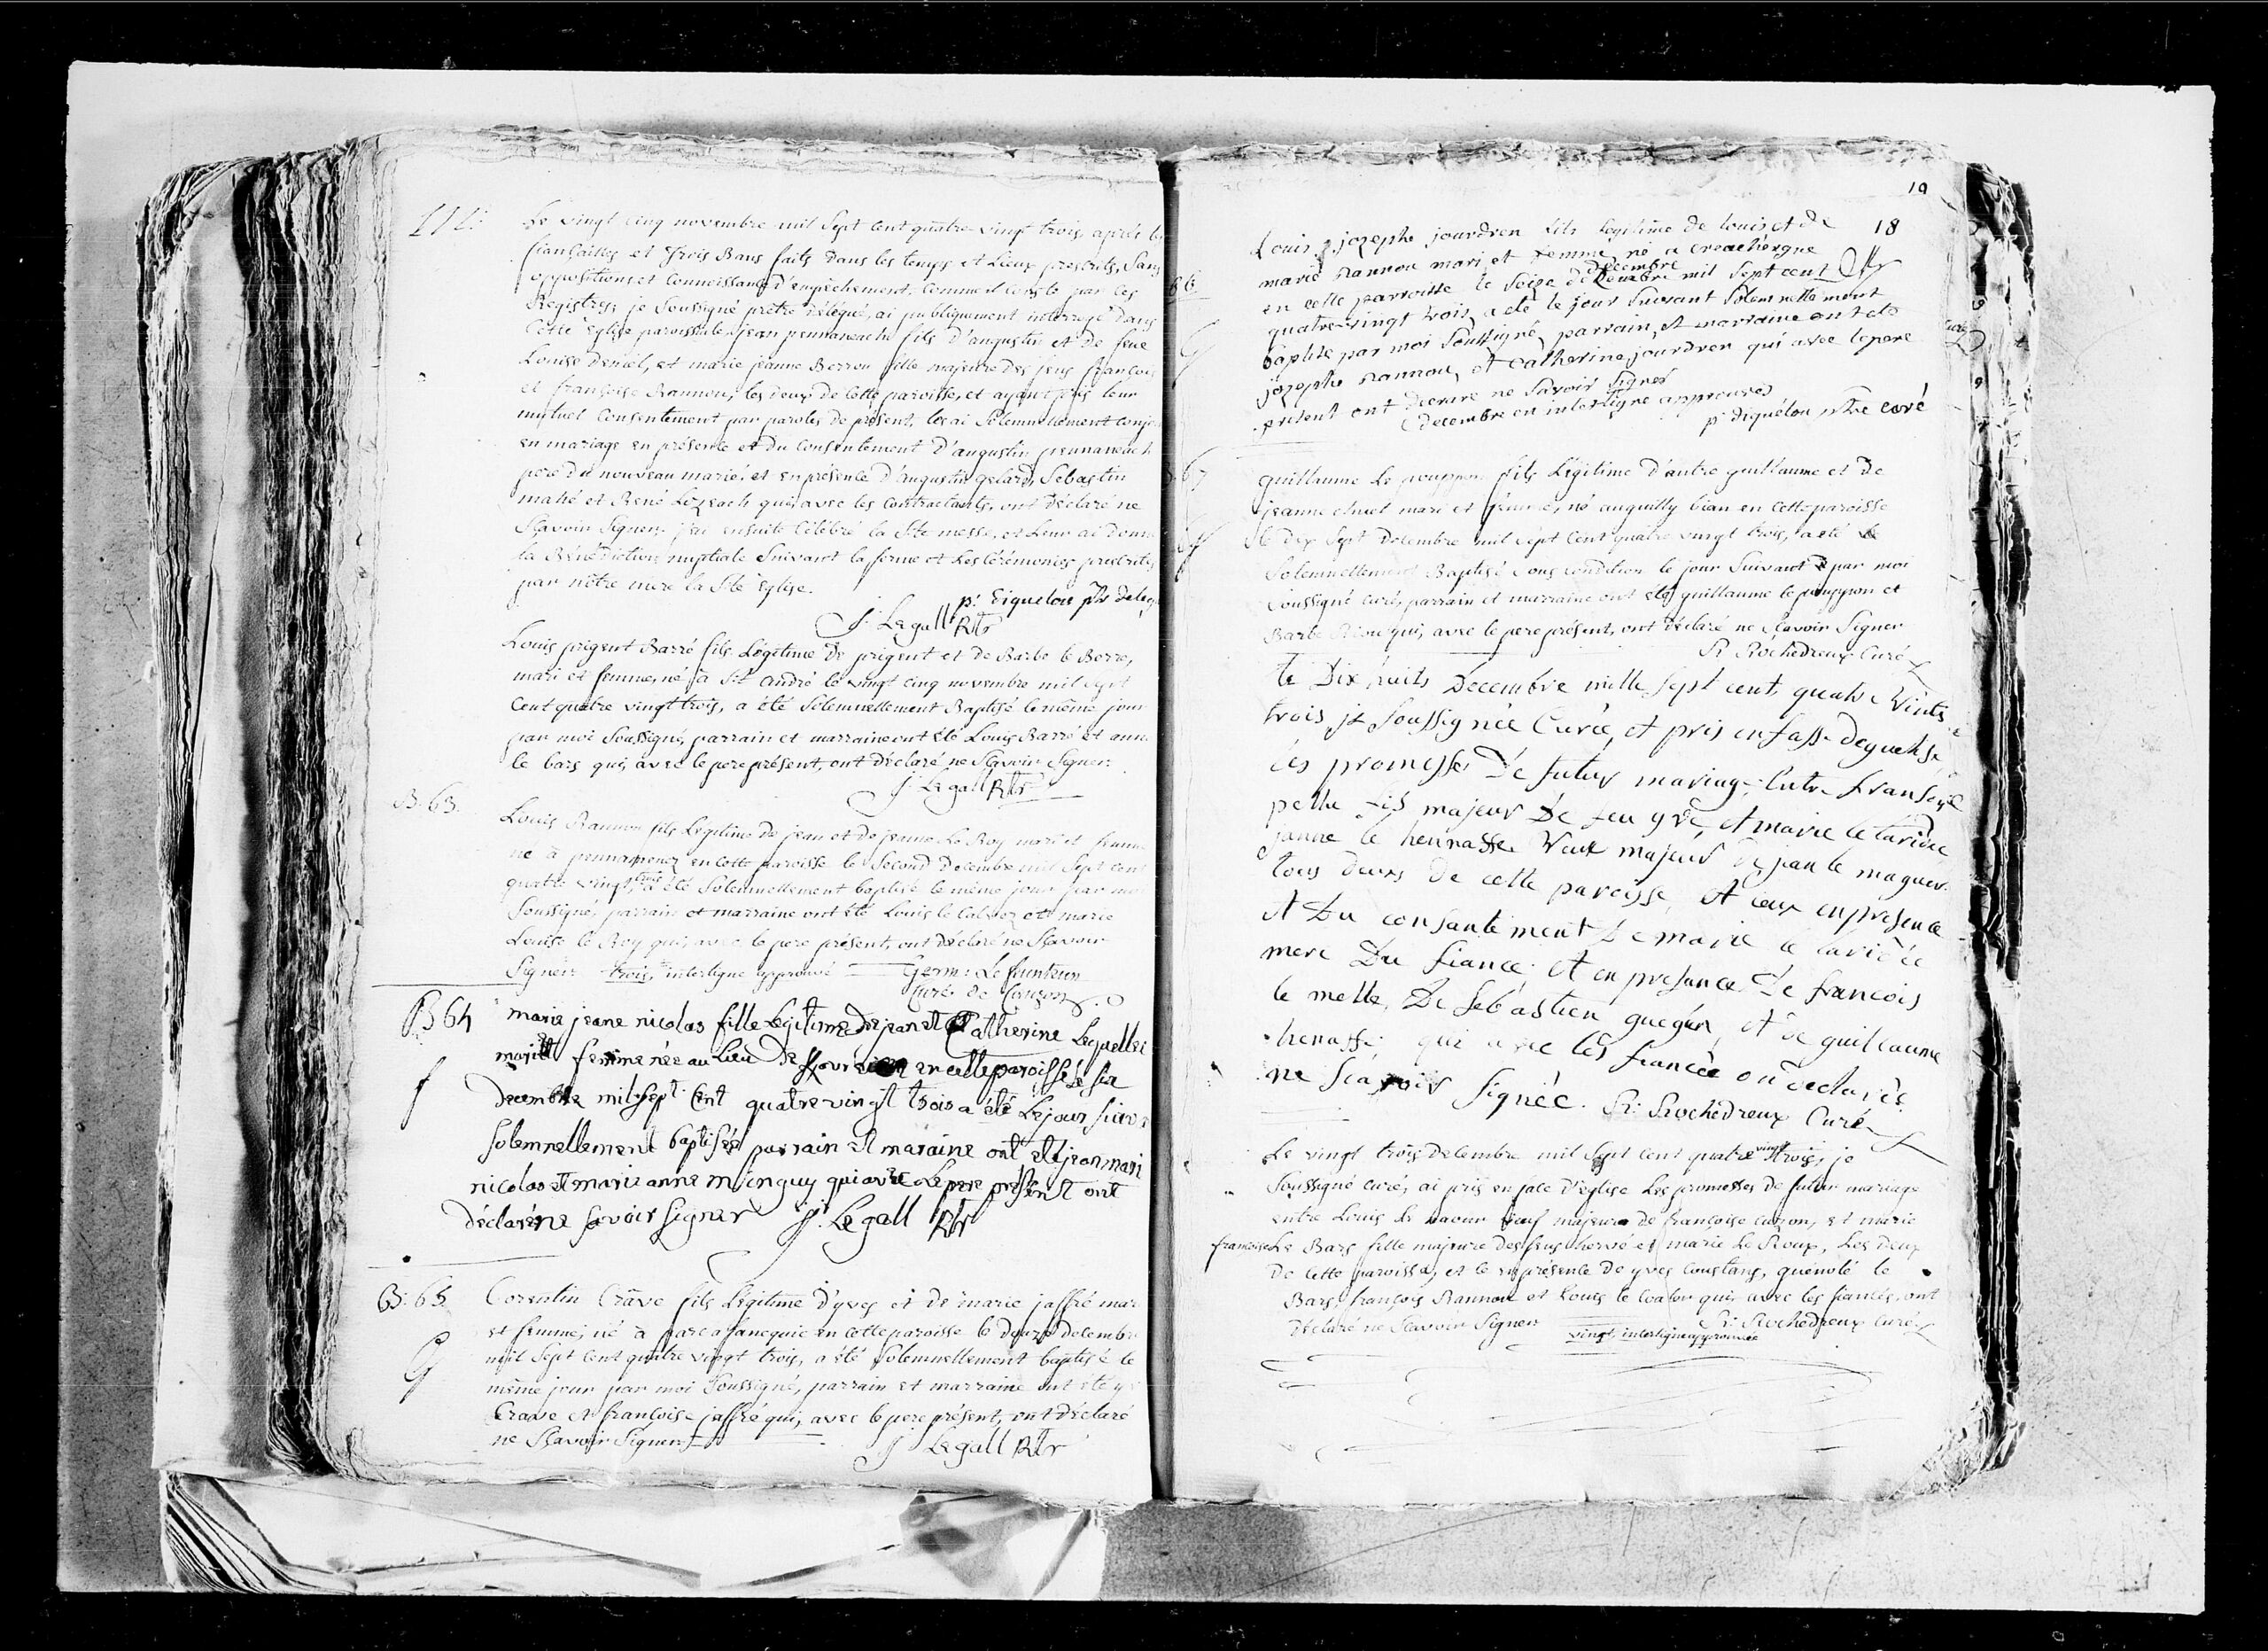 Le vingt cinq novembre mil Sept Cent quatre vingt trois, après les
fiançailles et trois Bans faits dans les temps et Lieux prescrits, Sans
oppositions et Connoissance d'empêchement, Comme il Conste par les
Registres, je Soussigné prêtre délégué, ai publiquement interrogé dans
cette Eglise paroissiale jean pennaneach fils d'augustin et de feue
Louise Deniel, et marie jeanne Berrou fille majeure des feus françois
et françoise Rannou, les deux de Cette paroisse, et ayant pris leur
mutuel Consentement par paroles de présent, les ai Solemnellement conj
en mariage en présence et du Consentement d'augustin pennaneach
pere du nouveau marié, et en présence d'augustin gelard, Sebastin
mahé et René Lezeach qui, avec les Contractants, ont déclaré ne
Sçavoir Signer, j'ai ensuite Célébré la Ste messe, et Leur ai donn
la Bénédiction nuptiale Suivant la forme et Les Cérémonies prescrites
par nôtre mere la Ste Eglise.
p: Diquelou ptre deleg
J: Legall Rtr
Louis prigent Barré fils Légitime de prigent et de Barbe le Berre,
mari et femme, né à St andré le vingt cinq novembre mil Sept
Cent quatre vingt trois, a été Solemnellement Baptisé le même jour
par moi Soussigné, parrain et marraine ont été Louis Barré et ann
le bars qui, avec le pere présent, ont déclaré ne Sçavoir Signer.
J: Legall Rtr
B. 63.
Louis Rannou fils Légitime de jean et de jeanne Le Roy mari et femme
né à pennamenez en Cette paroisse le Second Decembre mil Sept Cent
quatre vingt trois a été Solemnellement baptisé le même jour par mo
Soussigné, parrain et marraine ont été Louis le Calvez et marie
Louise le Roy qui, avec le pere présent, ont déclaré ne Sçavoir
Signer trois, interligne approuvé Germ: Le
Curé de Crozon
B 64
marie jeane nicolas fille Légitime de jean et Catherine Lequellec
mari et femme née au Lieu de en cette paroisse le six
decembre mil Sept Cent quatre vingt trois a été Le jour Suiv
Solemnellement baptisée parrain et maraine ont été jean mari
nicolas et marie anne minguy qui avec Le pere présent ont
déclaré ne Savoir Signer J: Legall Rtr
B: 65
G
Corentin Crâve fils Légitime d'yves et de marie jaffré mar
et femme, né à en Cette paroisse le Douze decembr
mil Sept Cent quatre vingt trois, a été Solemnellement baptisé le
même jour par moi Soussigné, parrain et marraine ont été y
Crave et françoise jaffré qui, avec le pere présent, ont déclaré
ne Sçavoir Signer
J Legall Rtr
19
18
66
G
Louis jozephe jourdren fils legitime de louis et de
marie rannou mari et femme, né a
en cette parroisse le Seize decembre mil Sept cent
quatre vingt trois a été le jour Suivant Solemnellement
baptisé par moi Soussigné, parrain, et marraine ont été
jozephe rannou, et Catherine jourdren qui avec le pere
present ont declaré ne Savoir Signer
decembre en interligne approuvés
p diquélou ptre curé
67
guillaume Le pouppon fils Légitime d'autre guillaume et de
jeanne mari et femme, né au guilly bian en Cette paroisse
le dix Sept Decembre mil Sept Cent quatre vingt trois, a été
Solemnellement Baptisé Sous condition le jour Suivant par moi
Soussigné curé, parrain et marraine ont été guillaume le pouppon et
Barbe Riou qui, avec le pere présent, ont déclaré ne Sçavoir Signer
Sr Rochedreux Curé
Le Dix huits Decembre mille sept cent quatre vints
trois je Soussignée Curée, et pris enfasse deguelise
les promesses De futur mariage Entre fransois
pelle fils majeur De feu yve, et marie le laridée
janne le hennasse veuve majeur de jean le maguer
tous deux De cette paroisse, et ceux enpresence
et Du consantement De marie le laridée
mere Du fiancé. et en presance De francois
le melle, De Sebastien guegen, et De guillaume
henasse qui avec les fiancée on declarée
ne scavoir Signée. Sr: Rochedreux Curé
Le vingt trois Decembre mil Sept Cent quatre vingt trois, je
Soussigné curé, ai pris en face d'église Les promesses de futur mariage
entre Louis Le naour veuf majeur de françoise Cuzon, et marie
francoise Le Bars fille majeure des feus hervé et marie Le Roux, Les Deux
de Cette paroisse, et ce en présence de yves Coustans, guenolé le
Bars, françois Rannou et Louis le Coatou qui, avec les fiancés, ont
déclaré ne Sçavoir Signer Sr: Rochedreux Curé
vingt, interligne approuvée